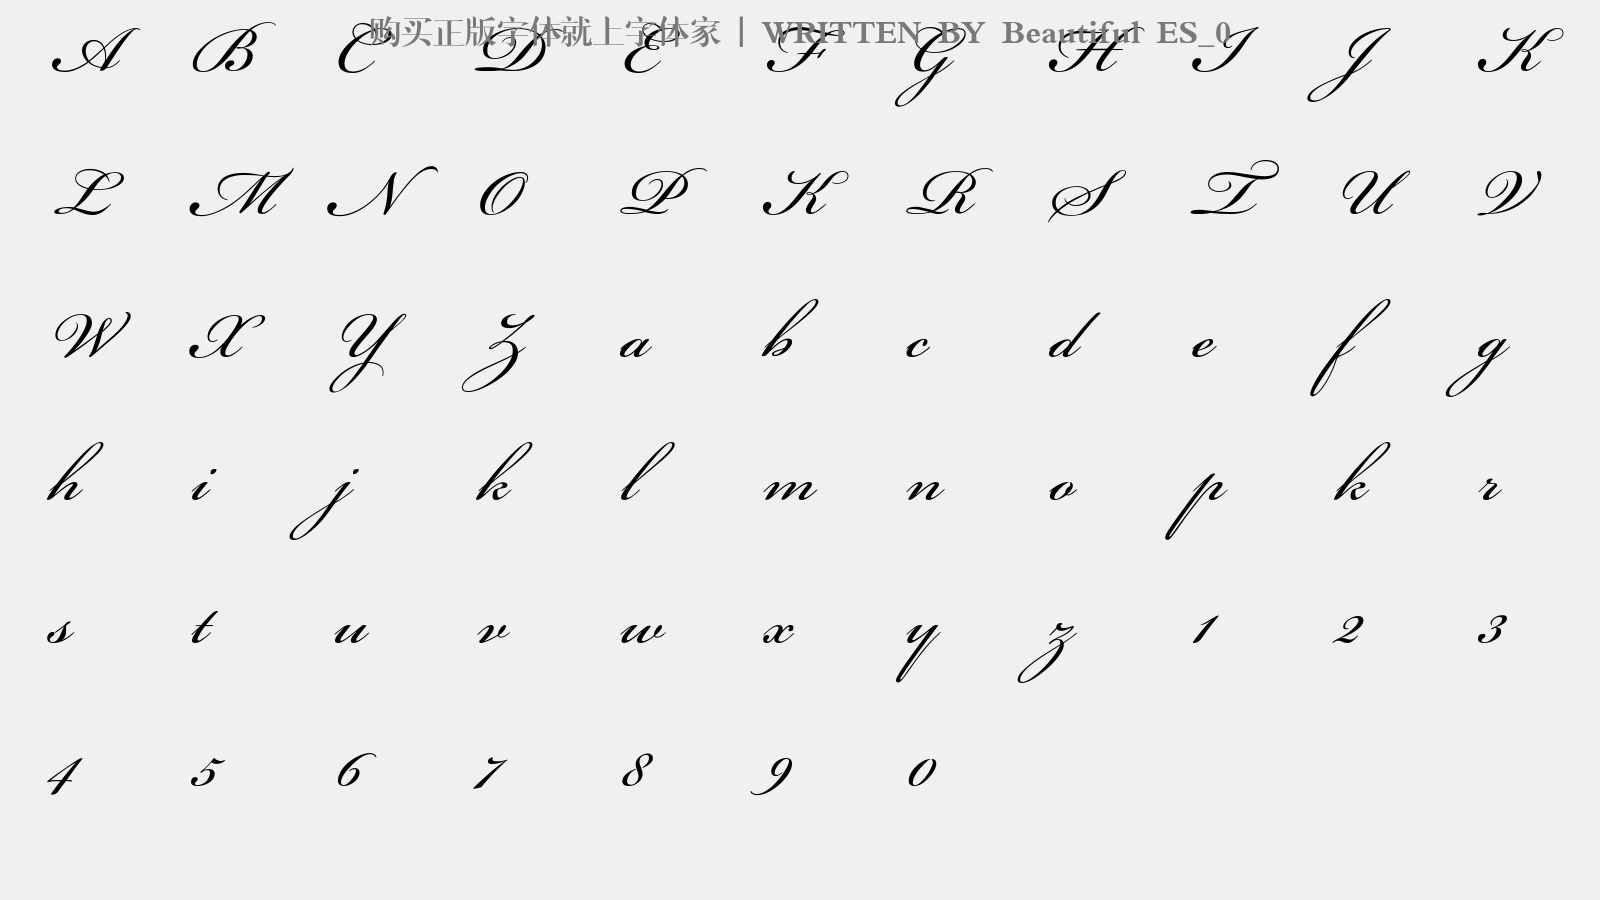 购买正版字体就上字体家 | WRITTEN BY Beautiful ES_0
A B C D E F G H I J K
L M N O P K R S T U V
W X Y Z a b c d e f g
h i j k l m n o p k r
s t u v w x y z 1 2 3
4 5 6 7 8 9 0